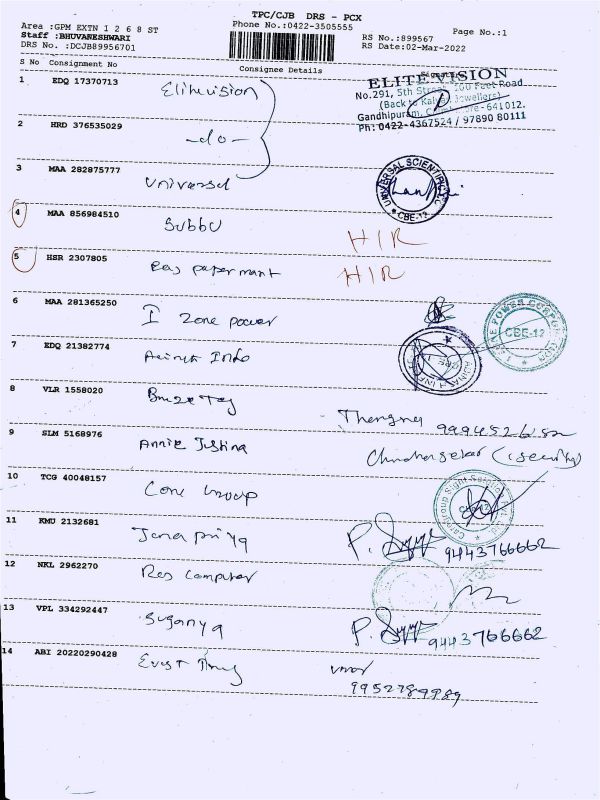 TPC/CJB DRS - PCX
Area :GPM EXTN 1 2 6 8 ST
Phone No.:0422-3505555
Page No.:1
Staff :BHUVANESHWARI
RS No.:899567
DRS No. :DCJB89956701
RS Date:02-Mar-2022
S No Consignment No Consignee Details
1 EDQ 17370713 Elitevision
ELITE VISION
No.291, 5th Street, 100 Feet Road
(Back to Jewellers)
Gandhipuram, Coimbatore - 641012.
Ph: 0422-4367524 / 97890 80111
2 HRD 376535029 -do-
3 MAA 282875777 Universal
UNIVERSAL SCIENTIFIC
CBE-12
4 MAA 856984510 Subbu HIR
5 HSR 2307805 HIR
6 MAA 281365250 I Zone power
I ZONE POWER CORPORATION
CBE-12
7 EDQ 21382774 Info
8 VLR 1558020
9 SLM 5168976 Annie Justina
Chandrasekar (Security)
10 TCG 40048157
11 KMU 2132681 Janapriya P. 9443766662
12 NKL 2962270 Res Computer
13 VPL 334292447 Suganya P. 9443766662
14 ABI 20220290428
9952789989